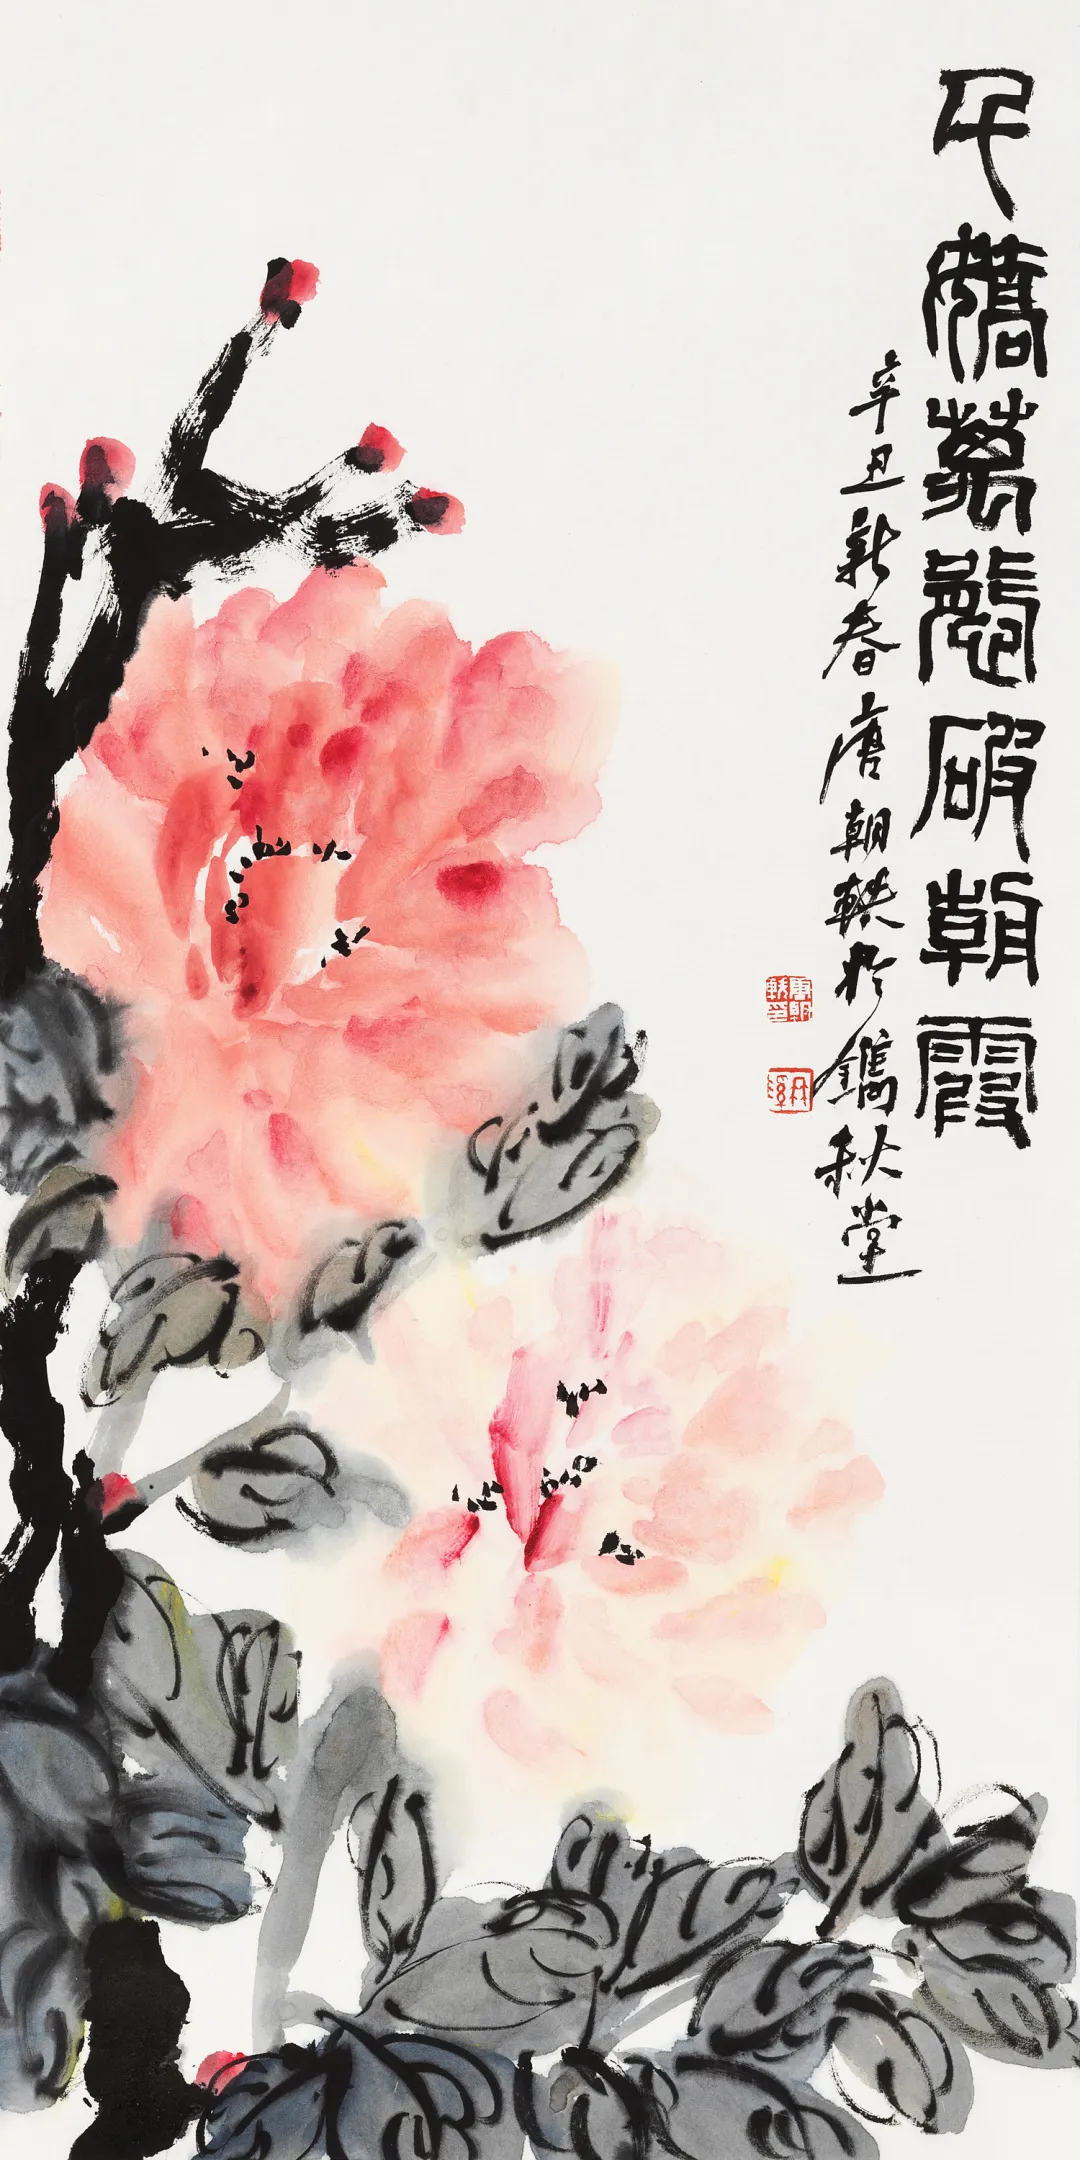 千嬌萬態破朝霞
辛丑新春唐朝軼於鐫秋堂
唐朝軼印